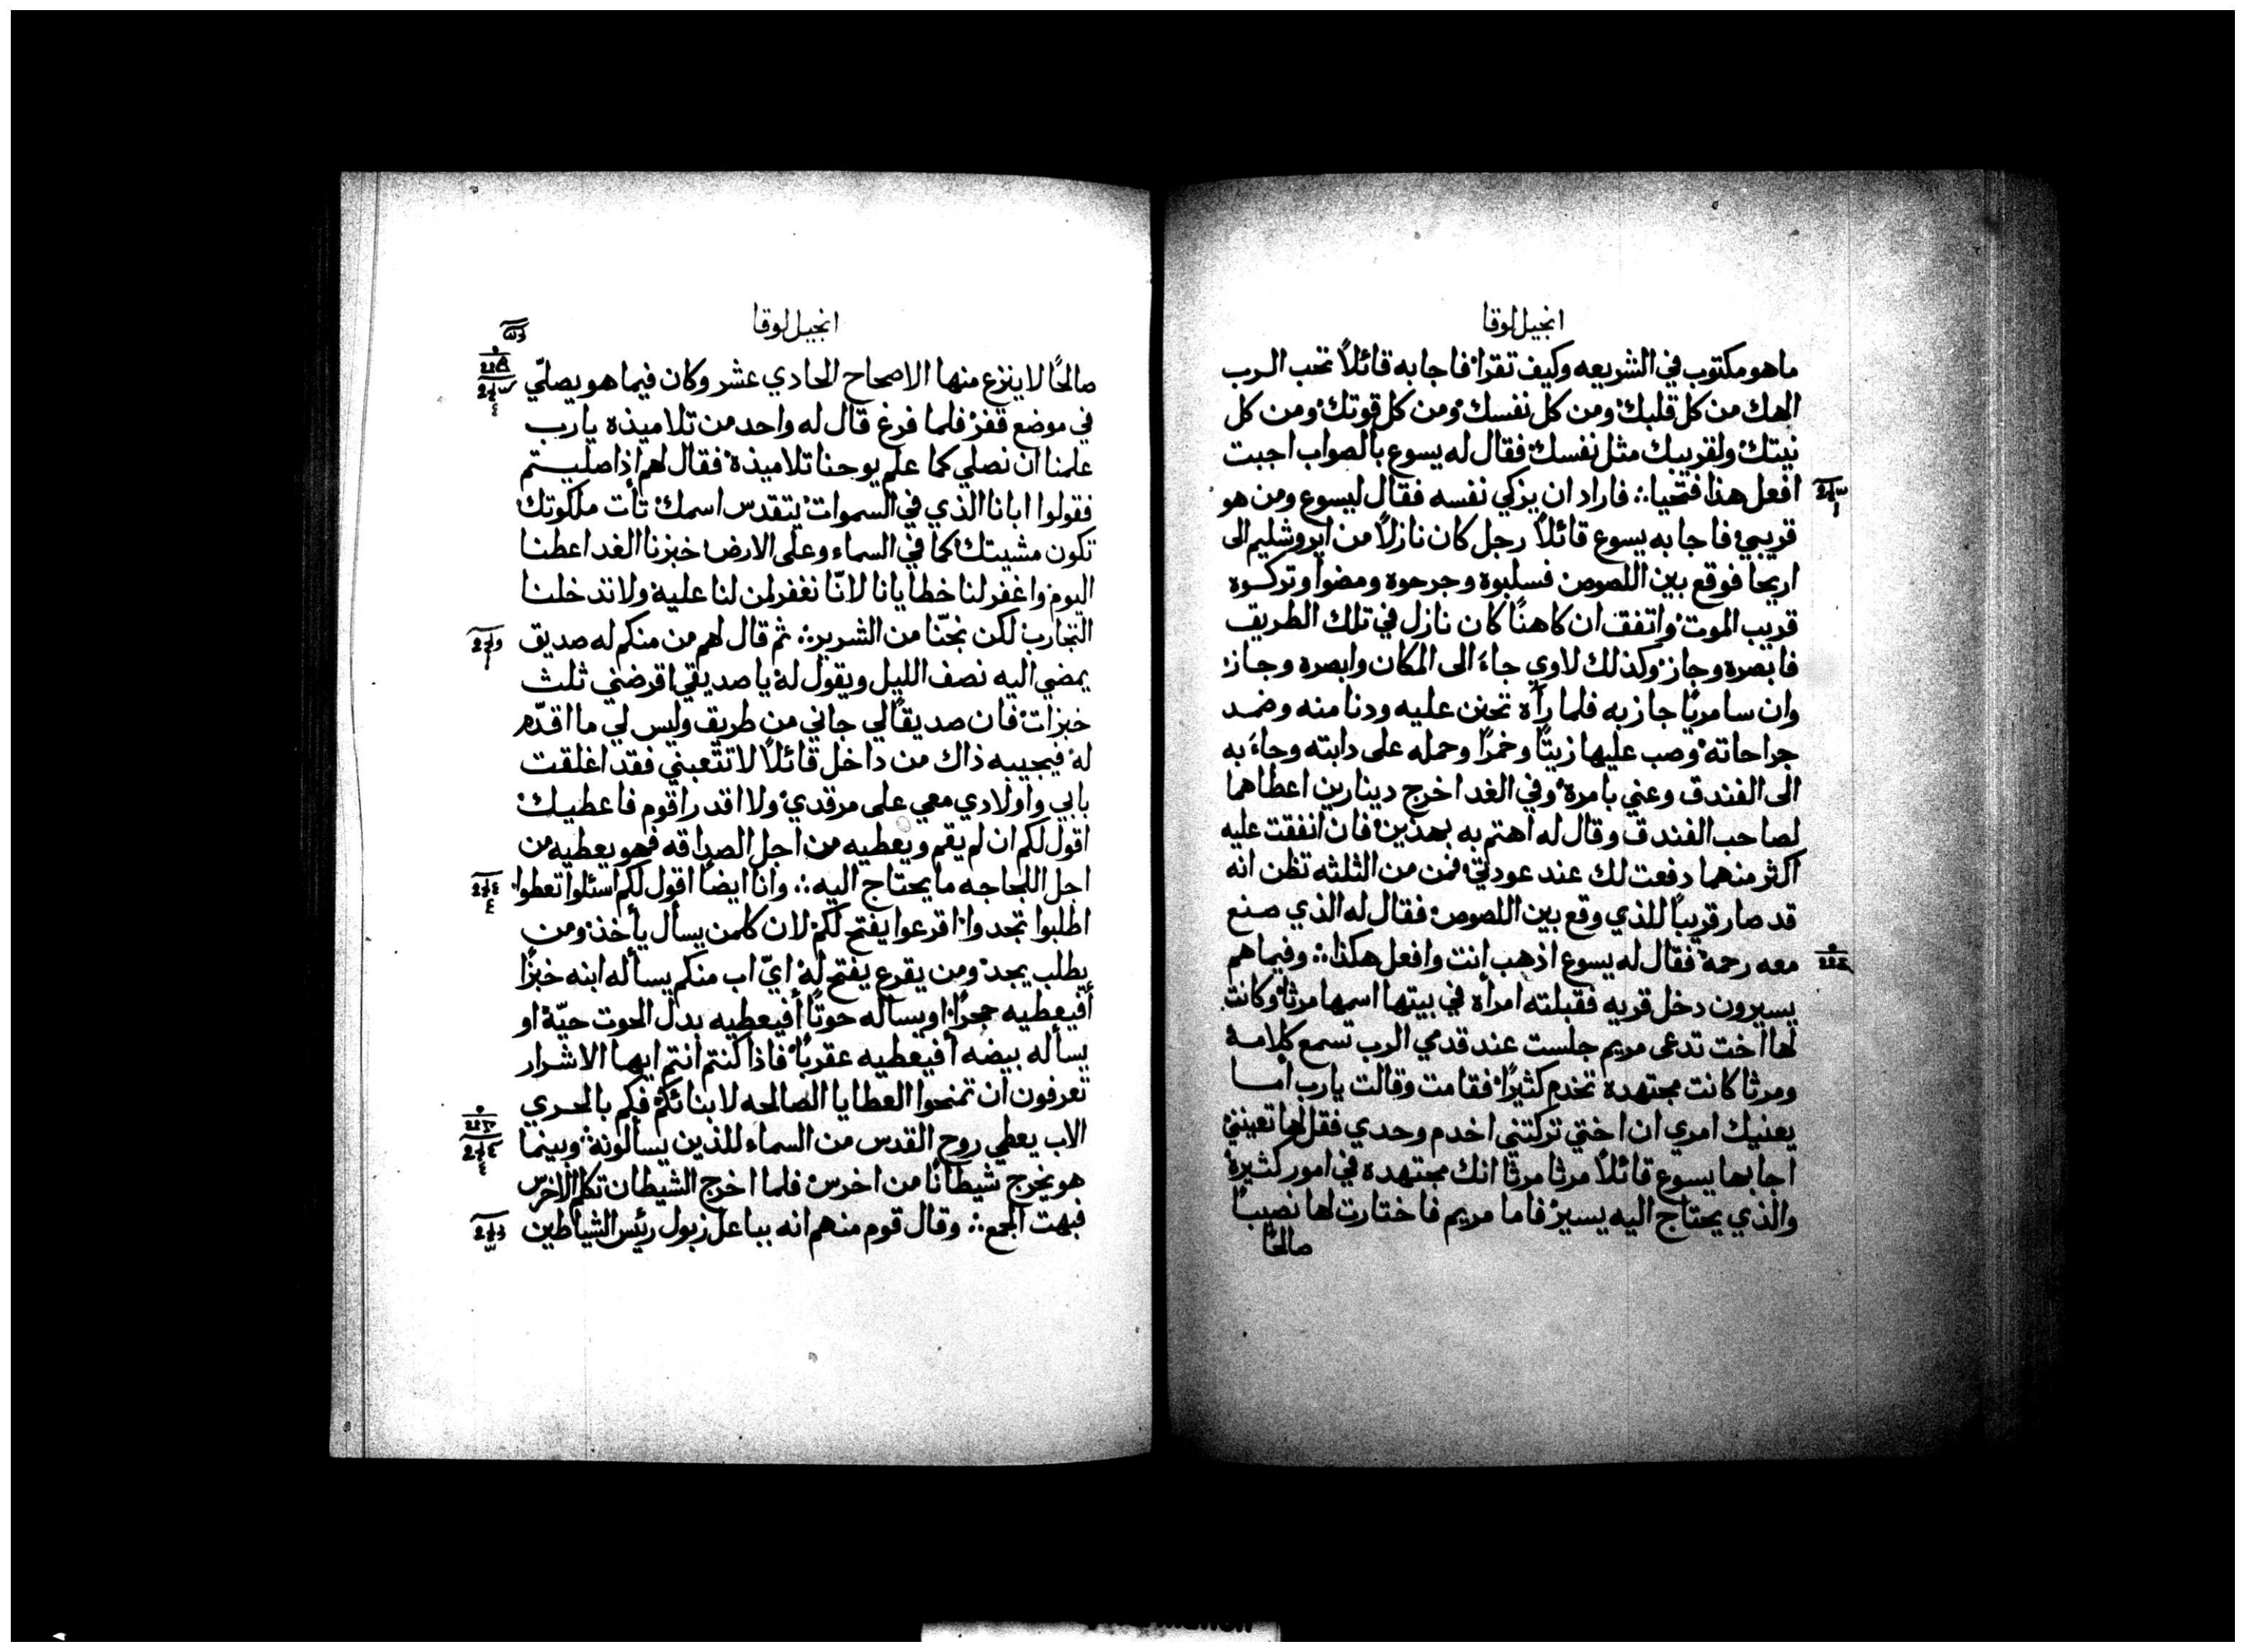 انجيل لوقا
ما هو مكتوب في الشريعه وكيف تقرا فاجابه قائلاً تحب الرب
الهك من كل قلبك ومن كل نفسك ومن كل قوتك ومن كل
نيتك ولقريبك مثل نفسك فقال له يسوع بالصواب اجبت
افعل هذا فتحيا ∴ فاراد ان يزكي نفسه فقال ليسوع ومن هو
قريبي فاجابه يسوع قائلاً رجل كان نازلاً من ايروشليم الى
اريحا فوقع بين اللصوص فسلبوه وجرحوه ومضوا وتركوه
قريب الموت واتفق ان كاهنًا كان نازل في تلك الطريق
فابصره وجاز وكذلك لاوي جاءَ الى المكان وابصره وجاز
وان سامريًا جاز به فلما رآه تحنن عليه ودنا منه وضمد
جراحاته وصب عليها زيتًا وخمرًا وحمله على دابته وجاءَ به
الى الفندق وعني بامره وفي الغد اخرج دينارين اعطاهما
لصاحب الفندق وقال له اهتم به بهذين فان انفقت عليه
اكثر منهما دفعت لك عند عودتي فمن من الثلثه تظن انه
قد صار قريبًا للذي وقع بين اللصوص فقال له الذي صنع
معه رحمه فقال له يسوع اذهب انت وافعل هكذا ∴ وفيما هم
يسيرون دخل قريه فقبلته امرأه في بيتها اسمها مرثا وكانت
لها اخت تدعى مريم جلست عند قدمي الرب تسمع كلامه
ومرثا كانت مجتهده تخدم كثيرًا فقامت وقالت يارب أما
يعنيك امري ان اختي تركتني اخدم وحدي فقل لها تعينني
اجابها يسوع قائلاً مرثا مرثا انك مجتهده في امور كثيرة
والذي يحتاج اليه يسير فاما مريم فاختارت لها نصيبًا
صالحًا
انجيل لوقا
صالحًا لا ينزع منها الاصحاح الحادي عشر وكان فيما هو يصلّي
في موضع قفر فلما فرغ قال له واحد من تلاميذه يارب
علمنا ان نصلي كما علم يوحنا تلاميذه فقال لهم اذا صليتم
فقولوا ابانا الذي في السموات يتقدس اسمك تأت ملكوتك
تكون مشيتك كما في السماء وعلى الارض خبزنا الغد اعطنا
اليوم واغفر لنا خطايانا لانّا نغفر لمن لنا عليه ولا تدخلنا
التجارب لكن نجّنا من الشرير ∴ ثم قال لهم من منكم له صديق
يمضي اليه نصف الليل ويقول له يا صديقي اقرضني ثلث
خبزات فان صديقًا لي جاني من طريق وليس لي ما اقدّم
له فيجيبه ذاك من داخل قائلاً لا تتعبني فقد اغلقت
بابي واولادي معي على مرقدي ولا اقدر اقوم فاعطيك
اقول لكم ان لم يقم ويعطيه من اجل الصداقه فهو يعطيه من
اجل اللجاجه ما يحتاج اليه ∴ وانا ايضًا اقول لكم اسئلوا تعطوا
اطلبوا تجدوا اقرعوا يفتح لكم لان كلمن يسأل يأخذ ومن
يطلب يجد ومن يقرع يفتح له ايّ اب منكم يسأله ابنه خبزًا
أفيعطيه حجرًا او يسأله حوتًا أفيعطيه بدل الحوت حيّة او
يسأله بيضه أفيعطيه عقربًا فاذا كنتم انتم ايها الاشرار
تعرفون ان تمنحوا العطايا الصالحه لابنائكم فكم بالحري
الاب يعطي روح القدس من السماء للذين يسألونه وبينما
هو يخرج شيطانًا من اخرس فلما اخرج الشيطان تكلم الاخرس
فبهت الجمع ∴ وقال قوم منهم انه بباعل زبول رئيس الشياطين